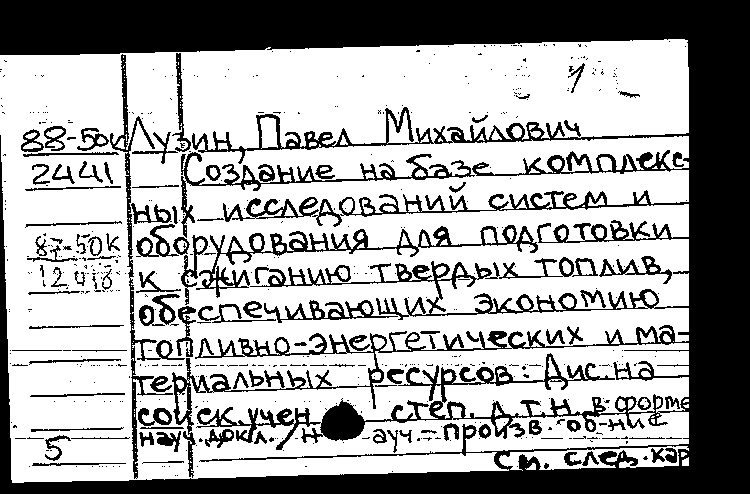 88-50к Лузин, Павел Михайлович
2441 Создание на базе комплекс-
ных исследований систем и
87-50к оборудования для подготовки
к сжиганию твердых топлив,
обеспечивающих экономию
топливно-энергетических и ма-
териальных ресурсов: Дис. на
соиск. учен степ. д.т.н. в форме
5 науч. докл. / Н ауч.-произв. об-ние
См. след. кар